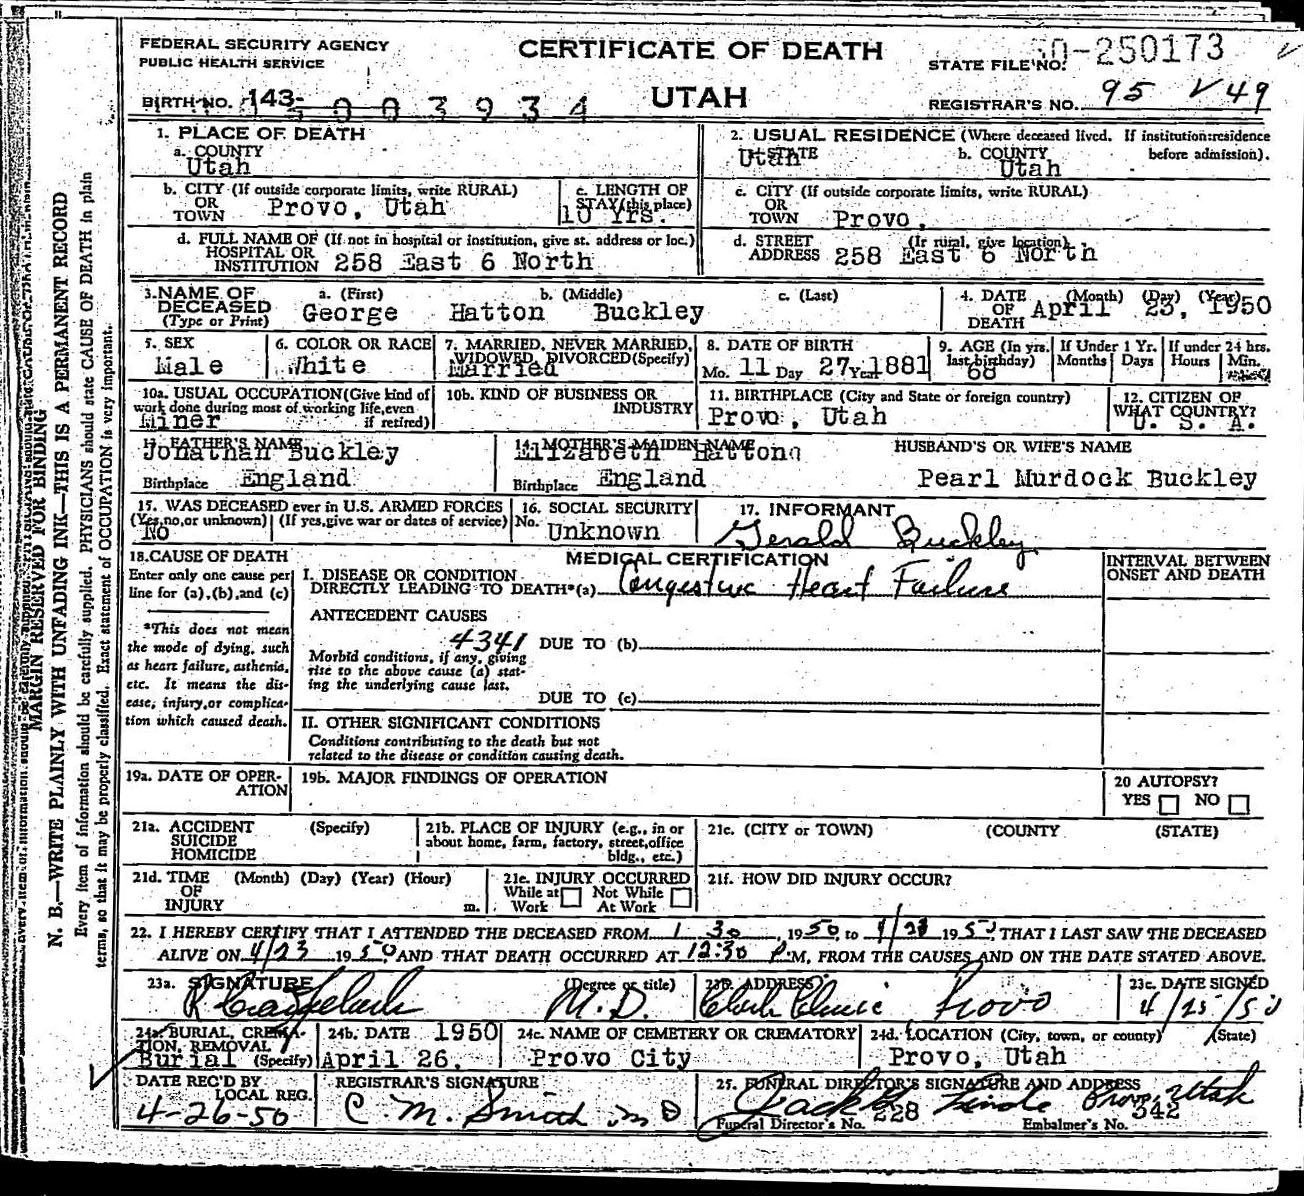 FEDERAL SECURITY AGENCY
PUBLIC HEALTH SERVICE
CERTIFICATE OF DEATH
UTAH
STATE FILE NO. 50-250173
BIRTH NO. 143- 5 0 0 3 9 3 4
REGISTRAR'S NO. 95 V 49
1. PLACE OF DEATH
a. COUNTY
Utah
2. USUAL RESIDENCE (Where deceased lived. If institution: residence before admission).
STATE Utah
b. COUNTY Utah
b. CITY (If outside corporate limits, write RURAL)
OR
TOWN Provo, Utah
c. LENGTH OF
STAY (this place)
10 Yrs.
c. CITY (If outside corporate limits, write RURAL)
OR
TOWN Provo,
d. FULL NAME OF (If not in hospital or institution, give st. address or loc.)
HOSPITAL OR
INSTITUTION 258 East 6 North
d. STREET (If rural, give location)
ADDRESS 258 East 6 North
3. NAME OF
DECEASED
(Type or Print)
a. (First) b. (Middle) c. (Last)
George Hatton Buckley
4. DATE (Month) (Day) (Year)
OF
DEATH April 23, 1950
5. SEX
Male
6. COLOR OR RACE
White
7. MARRIED, NEVER MARRIED,
WIDOWED, DIVORCED (Specify)
Married
8. DATE OF BIRTH
Mo. 11 Day 27 Year 1881
9. AGE (In yrs. last birthday)
68
If Under 1 Yr.
Months Days
If under 24 hrs.
Hours Min.
10a. USUAL OCCUPATION (Give kind of
work done during most of working life, even
if retired)
Miner
10b. KIND OF BUSINESS OR
INDUSTRY
11. BIRTHPLACE (City and State or foreign country)
Provo, Utah
12. CITIZEN OF
WHAT COUNTRY?
U. S. A.
13. FATHER'S NAME
Jonathan Buckley
Birthplace England
14a MOTHER'S MAIDEN NAME
Elizabeth Hatton
Birthplace England
HUSBAND'S OR WIFE'S NAME
Pearl Murdock Buckley
15. WAS DECEASED ever in U.S. ARMED FORCES
(Yes, no, or unknown) (If yes, give war or dates of service)
No
16. SOCIAL SECURITY
No. Unknown
17. INFORMANT
Gerald Buckley
18. CAUSE OF DEATH
Enter only one cause per
line for (a), (b), and (c)
*This does not mean
the mode of dying, such
as heart failure, asthenia,
etc. It means the dis-
ease, injury, or complica-
tion which caused death.
MEDICAL CERTIFICATION
I. DISEASE OR CONDITION
DIRECTLY LEADING TO DEATH*(a) Congestive Heart Failure
INTERVAL BETWEEN
ONSET AND DEATH
ANTECEDENT CAUSES
4341 DUE TO (b)
Morbid conditions, if any, giving
rise to the above cause (a) stat-
ing the underlying cause last.
DUE TO (c)
II. OTHER SIGNIFICANT CONDITIONS
Conditions contributing to the death but not
related to the disease or condition causing death.
19a. DATE OF OPER-
ATION
19b. MAJOR FINDINGS OF OPERATION
20 AUTOPSY?
YES NO
21a. ACCIDENT (Specify)
SUICIDE
HOMICIDE
21b. PLACE OF INJURY (e.g., in or
about home, farm, factory, street, office
bldg., etc.)
21c. (CITY or TOWN) (COUNTY (STATE)
21d. TIME (Month) (Day) (Year) (Hour)
OF
INJURY m.
21e. INJURY OCCURRED
While at Work Not While At Work
21f. HOW DID INJURY OCCUR?
22. I HEREBY CERTIFY THAT I ATTENDED THE DECEASED FROM 1 30, 1950, to 4/23 1950, THAT I LAST SAW THE DECEASED
ALIVE ON 4/23 1950 AND THAT DEATH OCCURRED AT 12:30 P.M, FROM THE CAUSES AND ON THE DATE STATED ABOVE.
23a. SIGNATURE (Degree or title)
M.D.
23b. ADDRESS
Clark Clinic Provo
23c. DATE SIGNED
4/25/50
24a. BURIAL, CREMA-
TION, REMOVAL
Burial (Specify)
24b. DATE 1950
April 26,
24c. NAME OF CEMETERY OR CREMATORY
Provo City
24d. LOCATION (City, town, or county) (State)
Provo, Utah
DATE REC'D BY
LOCAL REG.
4-26-50
REGISTRAR'S SIGNATURE
C. M. Smith M D
25. FUNERAL DIRECTOR'S SIGNATURE AND ADDRESS
Provo, Utah
Funeral Director's No. 228
Embalmer's No. 342
MARGIN RESERVED FOR BINDING
N. B.—WRITE PLAINLY WITH UNFADING INK—THIS IS A PERMANENT RECORD
Every item of information should be carefully supplied. PHYSICIANS should state CAUSE OF DEATH in plain
terms, so that it may be properly classified. Exact statement of OCCUPATION is very important.